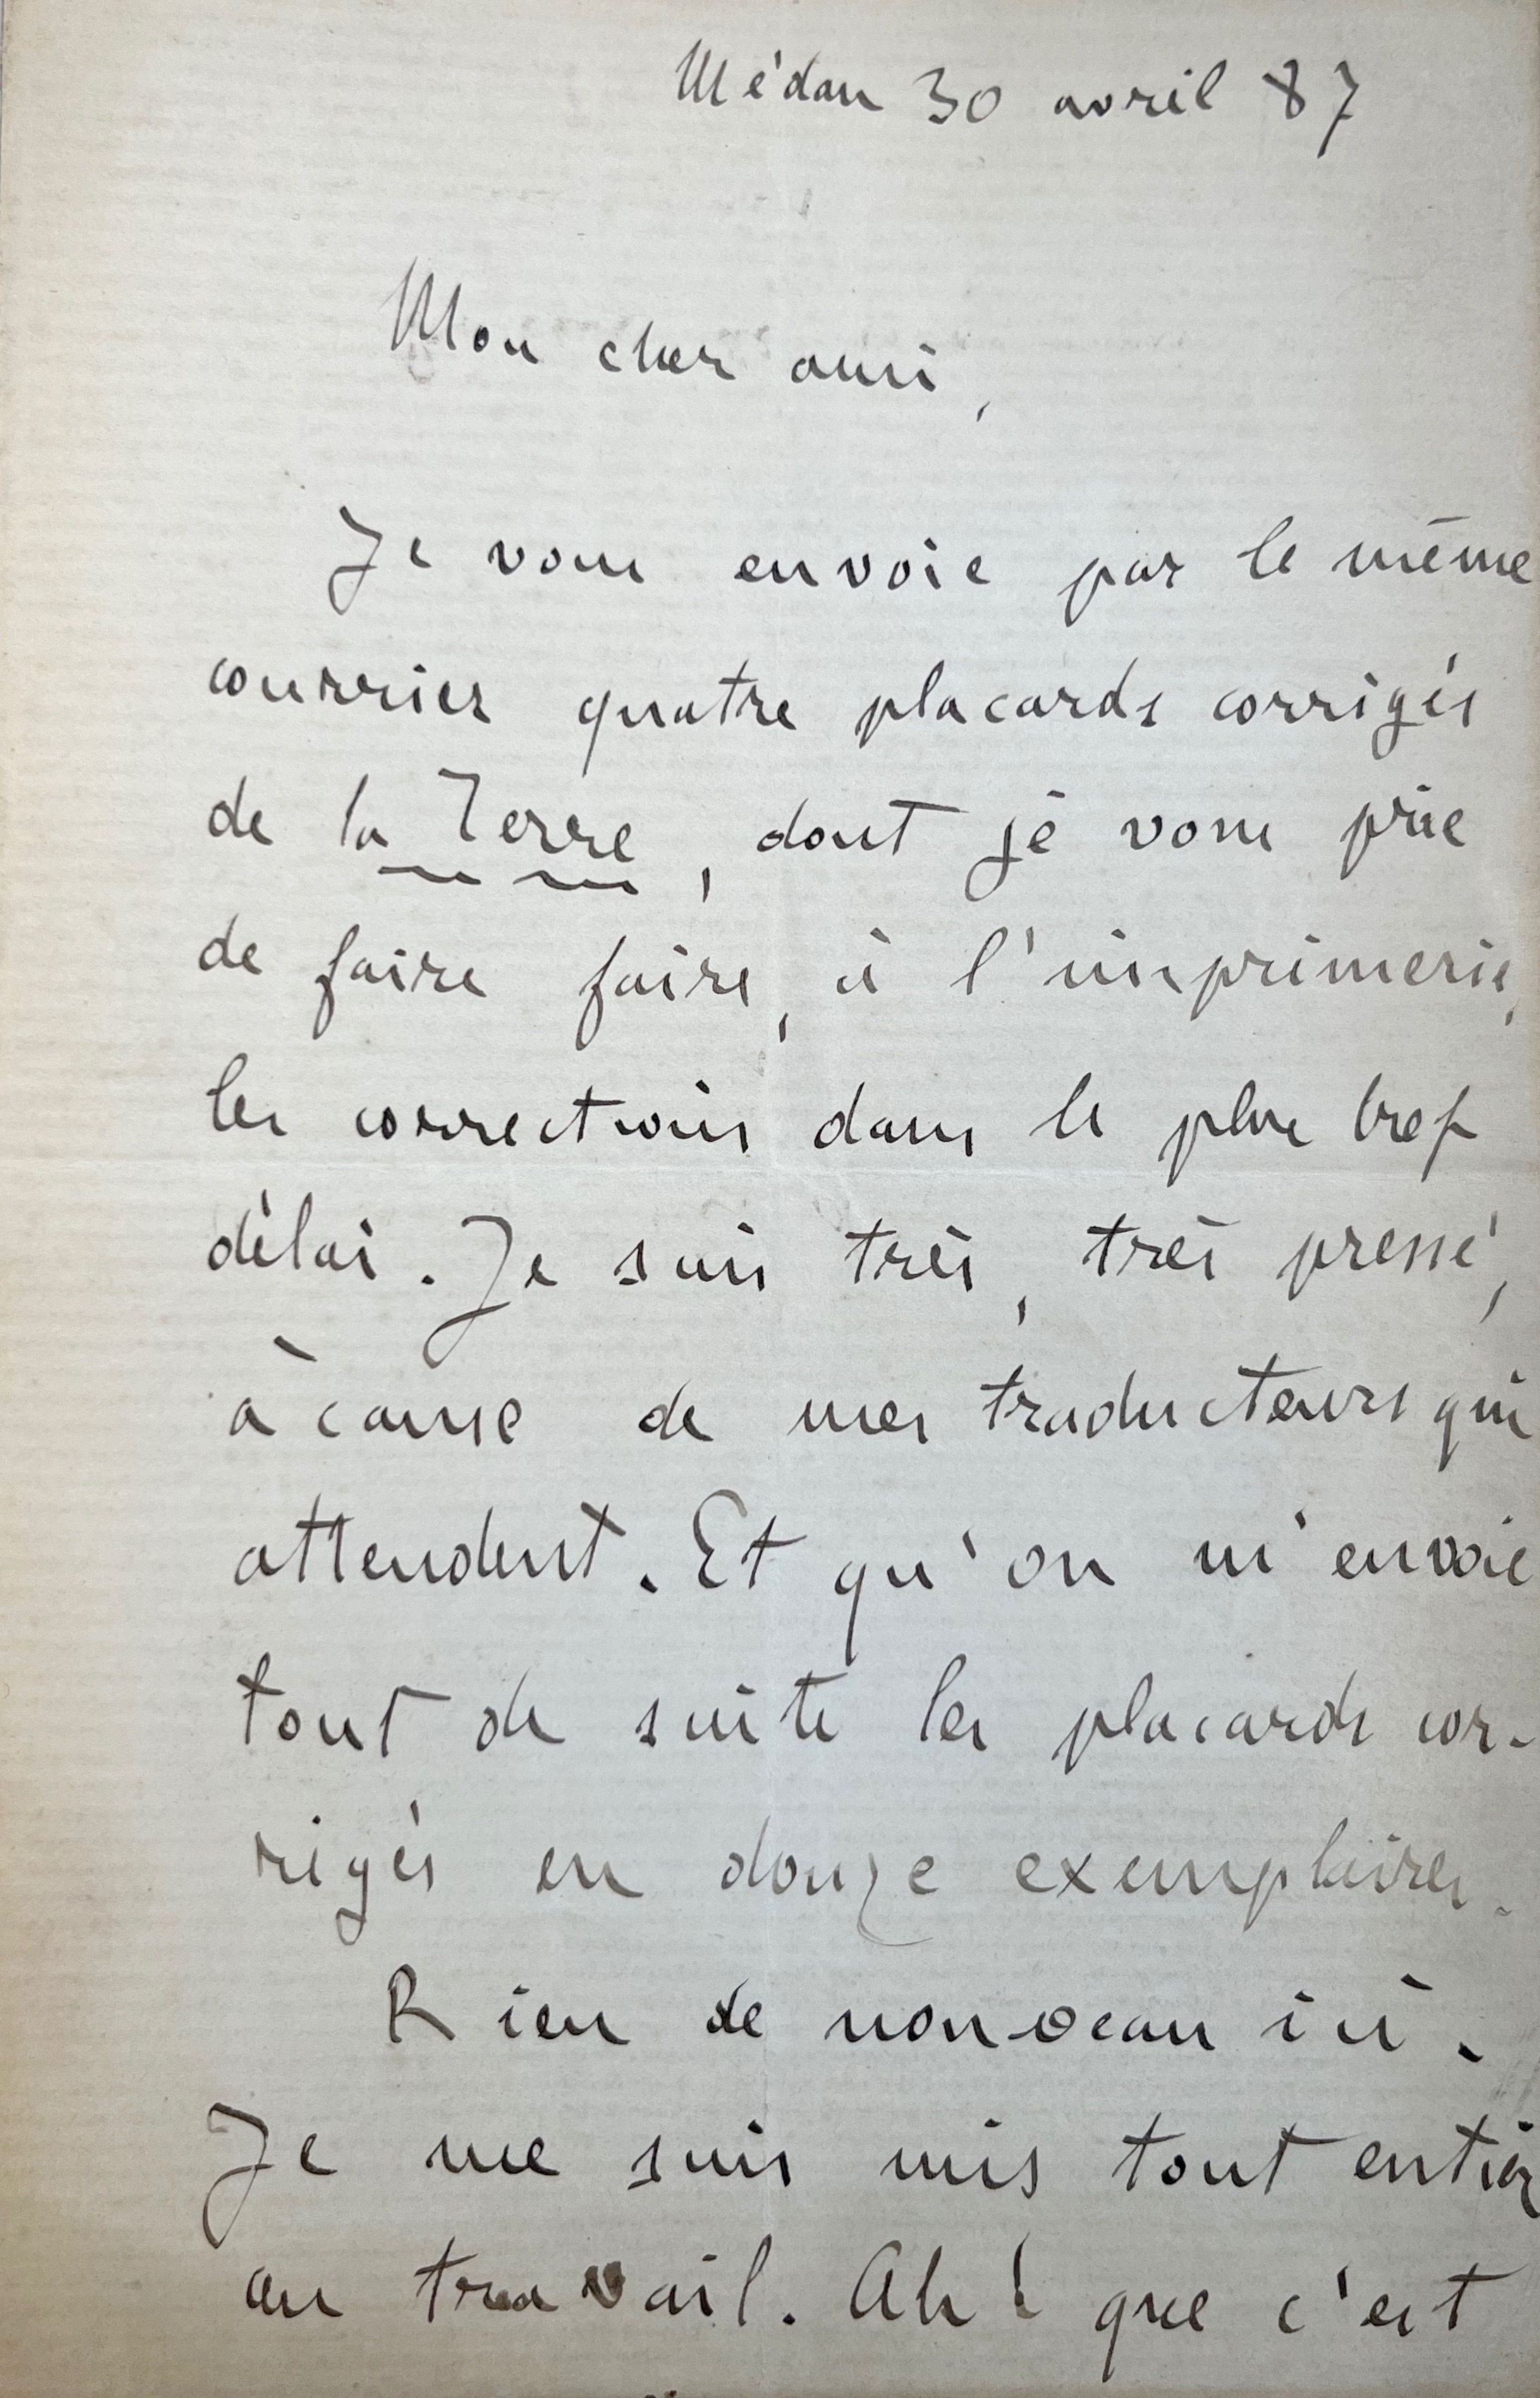 Médan 30 avril 87
Mon cher ami,
Je vous envoie par le même
courrier quatre placards corrigés
de la Terre, dont je vous prie
de faire faire, à l'imprimerie,
les corrections dans le plus bref
délai. Je suis très, très pressé,
à cause de mes traducteurs qui
attendent. Et qu'on m'envoie
tout de suite les placards cor-
rigés en douze exemplaires.
Rien de nouveau ici.
Je me suis mis tout entier
au travail. Ah! que c'est